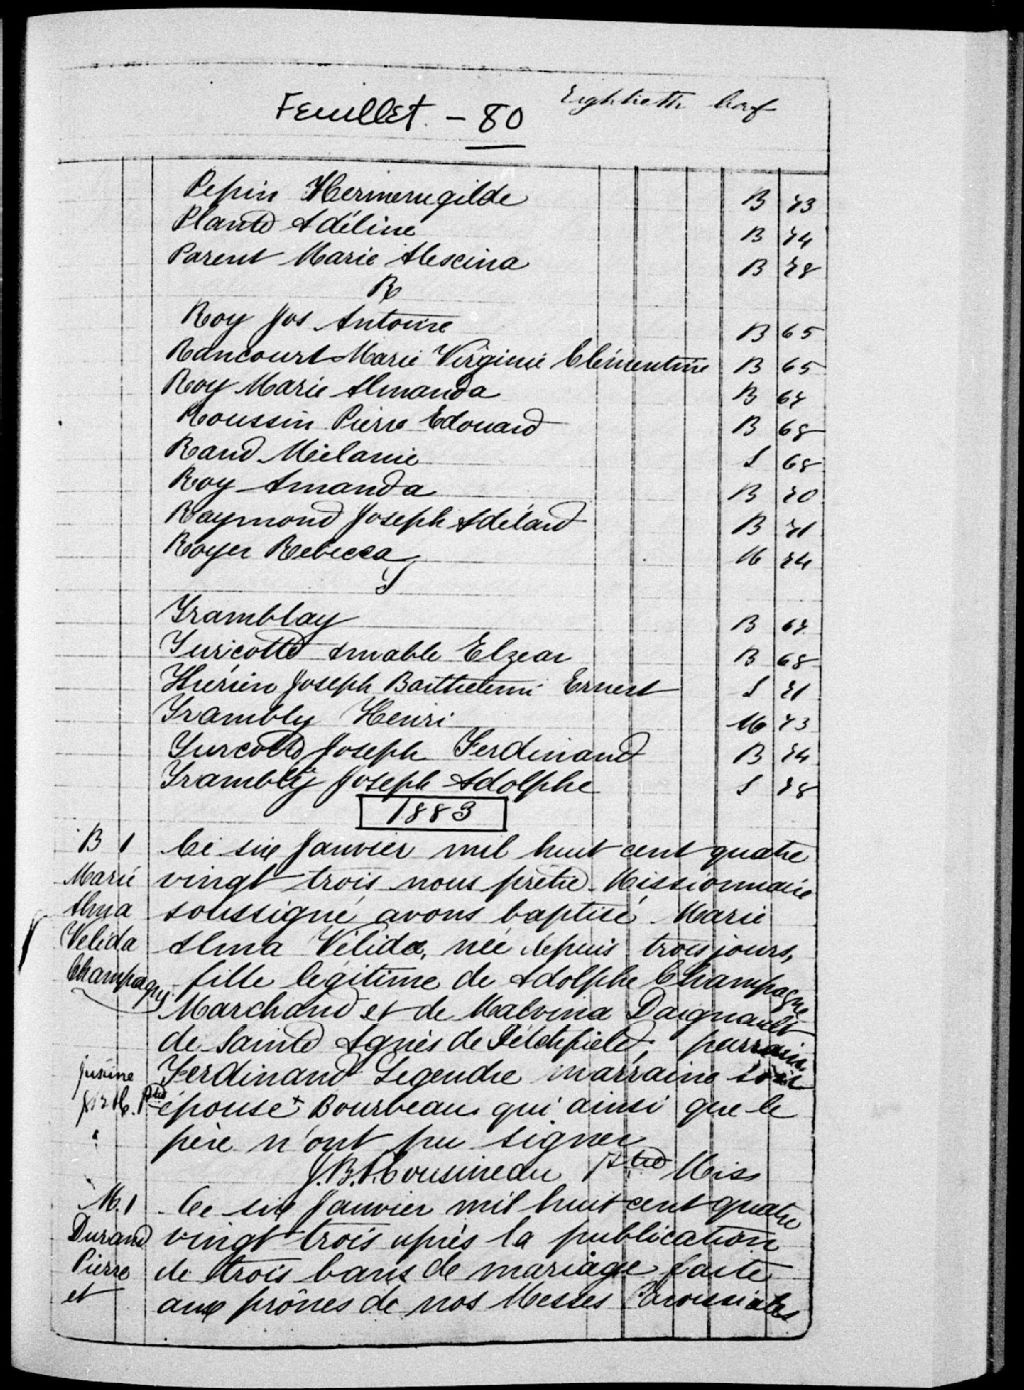 Feuillet - 80 Eightieth leaf
Pepin Hermenegilde B 73
Plante Adéline B 74
Parent Marie Alescina B 78
R
Roy Jos Antoine B 65
Rancourt Marie Virginie Clémentine B 65
Roy Marie Almanda B 67
Roussin Pierre Edouard B 68
Rand Mélanie S 68
Roy Amanda B 70
Raymond Joseph Adélard B 71
Royer Rebecca M 74
Tramblay B 67
Turcotte Amable Elzear B 68
Thérien Joseph Barthelemi Ernest S 71
Trambly Henri M 73
Turcotte Joseph Ferdinand B 74
Trambly Joseph Adolphe S 78
1883
B 1 Ce six Janvier mil huit cent quatre
Marie vingt trois nous prêtre Missionnaire
Alma soussigné avons baptisé Marie
Velida Alma Vélida, née depuis trois jours,
Champagne fille legitime de Adolphe Champagne
Marchand et de Malvina Daignault
de Sainte Agnès de parrain
Ferdinand Legendre marraine son
épouse + Bourbeau qui ainsi que le
père n'ont pu signer
J.B.A. Cousineau Ptre Miss
M. 1 Ce six Janvier mil huit cent quatre
Durand vingt trois après la publication
Pierre de trois bans de mariage faite
et aux prônes de nos Messes Paroissiales